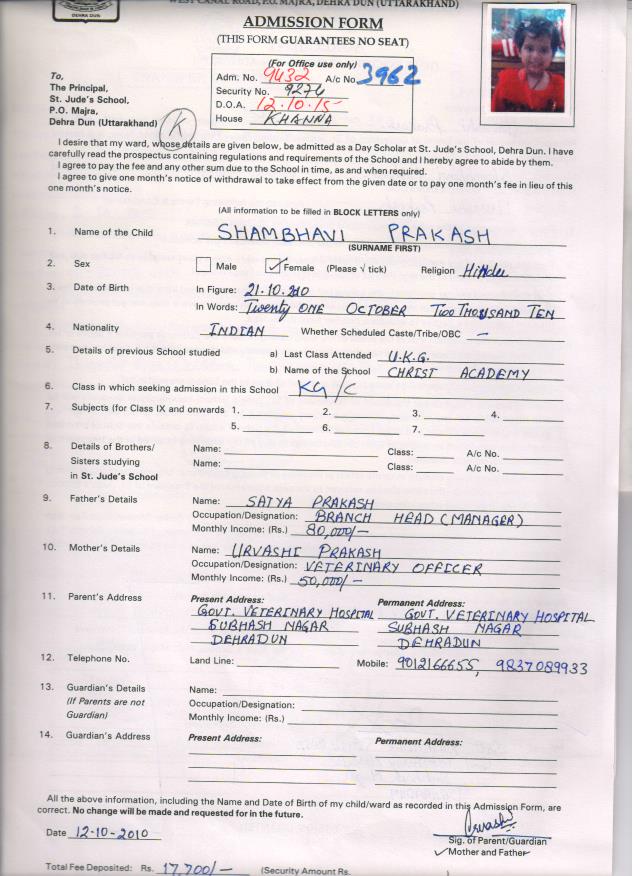 DEHRA DUN
WEST CANAL ROAD, P.O. MAJRA, DEHRA DUN (UTTARAKHAND)
ADMISSION FORM
(THIS FORM GUARANTEES NO SEAT)
(For Office use only)
Adm. No. 9432 A/c No. 3962
Security No. 9274
D.O.A. 12.10.15
House KHANNA
To,
The Principal,
St. Jude's School,
P.O. Majra,
Dehra Dun (Uttarakhand)
K
I desire that my ward, whose details are given below, be admitted as a Day Scholar at St. Jude's School, Dehra Dun. I have
carefully read the prospectus containing regulations and requirements of the School and I hereby agree to abide by them.
I agree to pay the fee and any other sum due to the School in time, as and when required.
I agree to give one month's notice of withdrawal to take effect from the given date or to pay one month's fee in lieu of this
one month's notice.
(All information to be filled in BLOCK LETTERS only)
1. Name of the Child SHAMBHAVI PRAKASH
(SURNAME FIRST)
2. Sex Male ✓ Female (Please √ tick) Religion Hindu
3. Date of Birth In Figure: 21.10.2010
In Words: Twenty ONE OCTOBER TWO THOUSAND TEN
4. Nationality INDIAN Whether Scheduled Caste/Tribe/OBC —
5. Details of previous School studied a) Last Class Attended U.K.G.
b) Name of the School CHRIST ACADEMY
6. Class in which seeking admission in this School KG/C
7. Subjects (for Class IX and onwards 1. 2. 3. 4.
5. 6. 7.
8. Details of Brothers/ Name: Class: A/c No.
Sisters studying Name: Class: A/c No.
in St. Jude's School
9. Father's Details Name: SATYA PRAKASH
Occupation/Designation: BRANCH HEAD (MANAGER)
Monthly Income: (Rs.) 80,000/-
10. Mother's Details Name: URVASHI PRAKASH
Occupation/Designation: VETERINARY OFFICER
Monthly Income: (Rs.) 50,000/-
11. Parent's Address Present Address: Permanent Address:
GOVT. VETERINARY HOSPITAL GOVT. VETERINARY HOSPITAL
SUBHASH NAGAR SUBHASH NAGAR
DEHRADUN DEHRADUN
12. Telephone No. Land Line: Mobile: 9012166655, 9837089933
13. Guardian's Details Name:
(If Parents are not Occupation/Designation:
Guardian) Monthly Income: (Rs.)
14. Guardian's Address Present Address: Permanent Address:
All the above information, including the Name and Date of Birth of my child/ward as recorded in this Admission Form, are
correct. No change will be made and requested for in the future.
Date 12-10-2010 Urvashi
Sig. of Parent/Guardian
✓ Mother and Father
Total Fee Deposited: Rs. 17,700/- (Security Amount Rs.